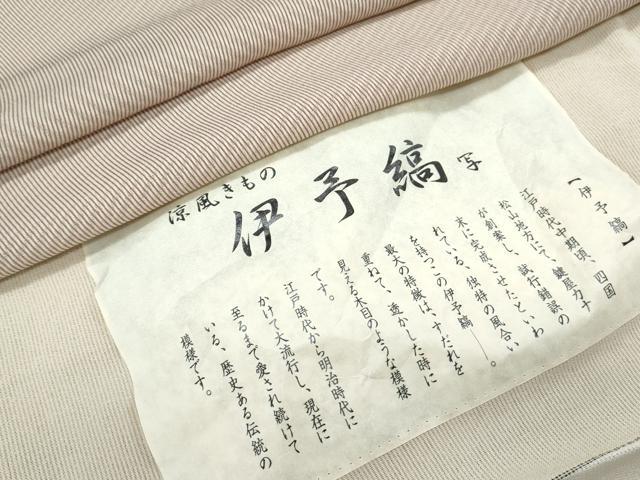 涼風きもの
伊予縞 写
【伊予縞】
江戸時代中期頃、四国
松山地方にて、鍵屋カナ
が創案し、試行錯誤の
末に完成させたといわ
れている、独特の風合い
を持つこの伊予縞――。
最大の特徴は、すだれを
重ねて、透かした時に
見える木目のような模様
です。
江戸時代から明治時代に
かけて大流行し、現在に
至るまで愛され続けて
いる、歴史ある伝統の
模様です。